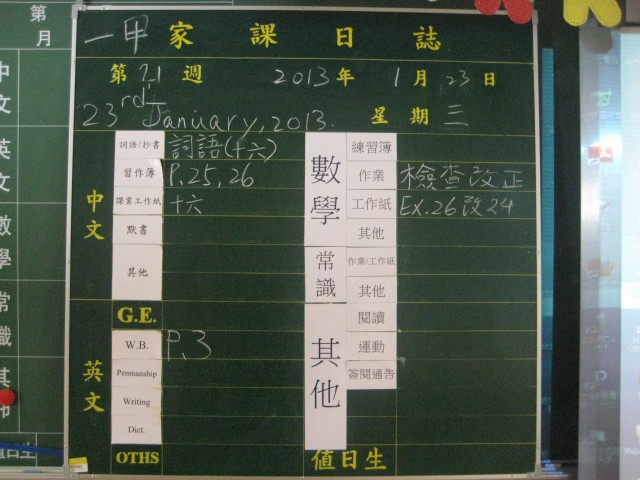 一甲 家課日誌
第21週 2013年 1月23日
23rd January, 2013. 星期三
中文
詞語/抄書 詞語(十六)
習作簿 P.25,26
課業工作紙 十六
默書
其他
G.E.
英文
W.B. P.3
Penmanship
Writing
Dict.
OTHS
數學
練習簿
作業 檢查改正
工作紙 Ex.26改24
其他
常識
作業/工作紙
其他
其他
閱讀
運動
簽閱通告
值日生
第
月
中文
英文
數學
常識
其
值日生